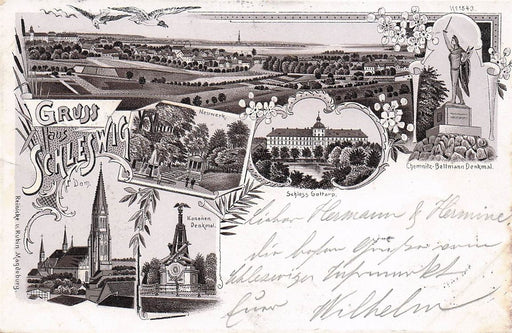 No 1843.
Gruss
aus
Schleswig
Neuwerk.
Chemnitz-Bellmann Denkmal.
Schloss Gottorp.
Dom.
Kanonen
Denkmal.
Reinicke u. Rubin Magdeburg.
Lieber Hermann & Hermine
die besten Grüße vom
Schleswiger
Euer Wilhelm